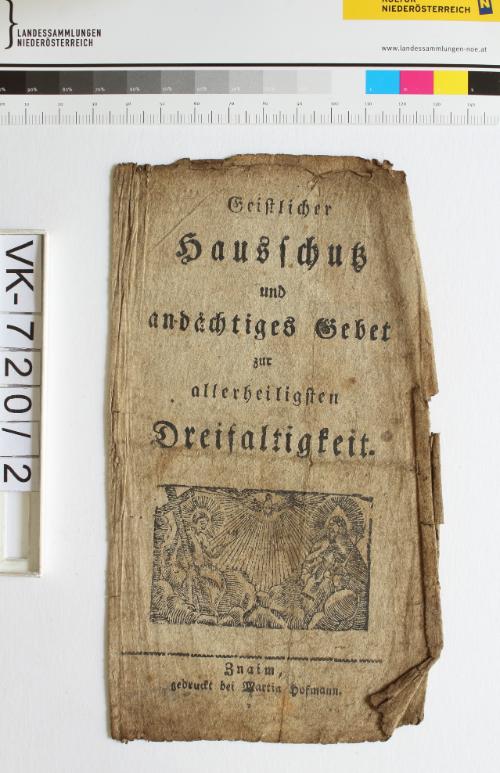 LANDESSAMMLUNGEN
NIEDERÖSTERREICH
KULTUR
NIEDERÖSTERREICH
N
www.landessammlungen-noe.at
VK-720/2
Geistlicher
Hausschutz
und
andächtiges Gebet
zur
allerheiligsten
Dreifaltigkeit.
Znaim,
gedruckt bei Martin Hofmann.